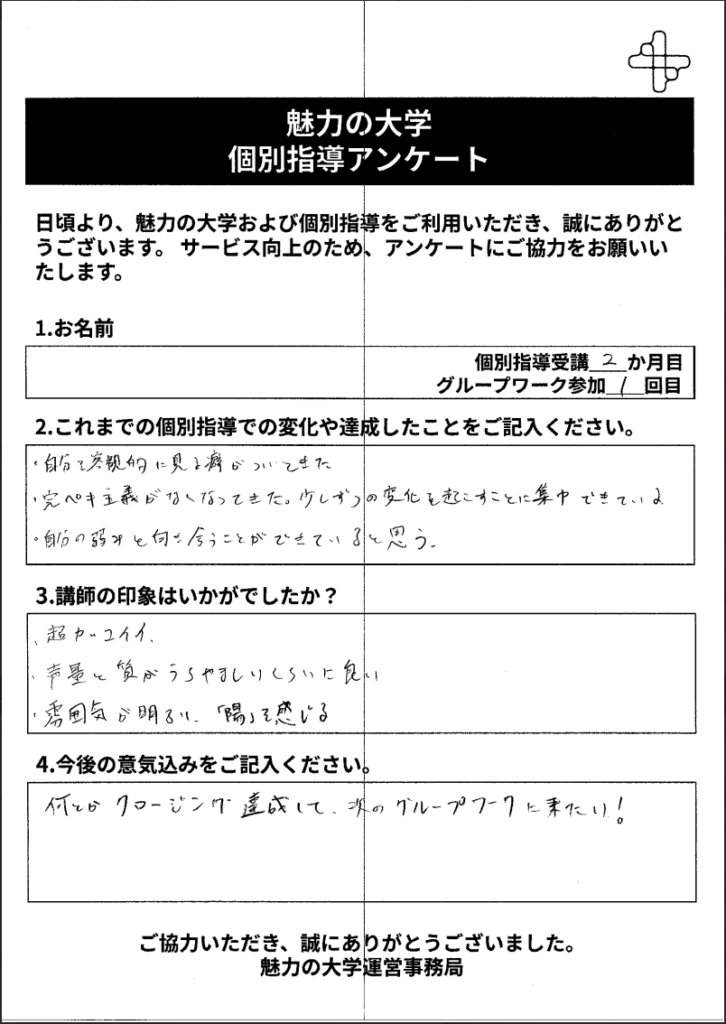 魅力の大学
個別指導アンケート
日頃より、魅力の大学および個別指導をご利用いただき、誠にありがと
うございます。 サービス向上のため、アンケートにご協力をお願いい
たします。
1.お名前
個別指導受講 2 か月目
グループワーク参加 1 回目
2.これまでの個別指導での変化や達成したことをご記入ください。
・自分で客観的に見る癖がついてきた
・完ペキ主義がなくなってきた。少しずつの変化を起こすことに集中できている
・自分の弱みと向き合うことができていると思う。
3.講師の印象はいかがでしたか？
・超カッコイイ、
・声量と質がうらやましいくらいに良い
・雰囲気が明るい、「陽」を感じる
4.今後の意気込みをご記入ください。
何とかクロージング達成して、次のグループワークに来たい！
ご協力いただき、誠にありがとうございました。
魅力の大学運営事務局